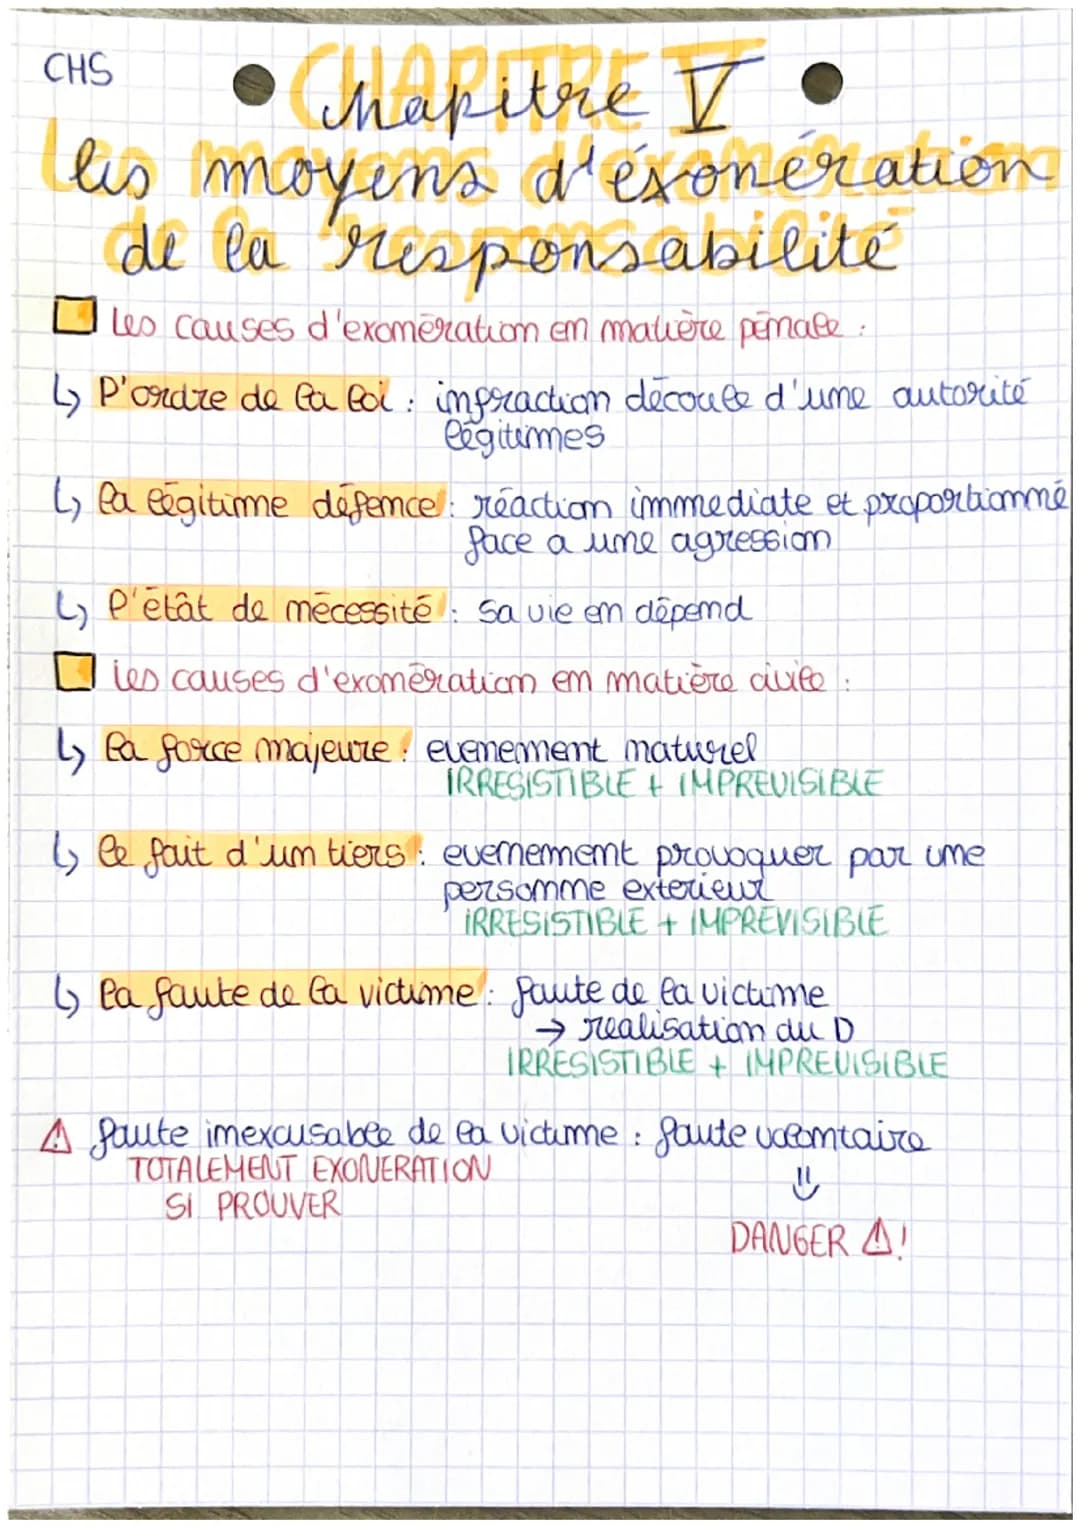 CHS
Chapitre V
les moyens d'éxonération
de la responsabilité
Les causes d'exonération en matière pénale :
↳ l'ordre de la loi : infraction découle d'une autorité
légitimes
↳ la légitime défence : réaction immediate et proportionné
face a une agression
↳ l'étât de nécessité : sa vie en dépend
Les causes d'exonération en matière civile :
↳ la force majeure : evenement naturel
IRRESISTIBLE + IMPREVISIBLE
↳ le fait d'un tiers : evenement provoquer par une
personne exterieur
IRRESISTIBLE + IMPREVISIBLE
↳ la faute de la victime : faute de la victime
→ realisation du D
IRRESISTIBLE + IMPREVISIBLE
⚠ faute inexcusable de la victime : faute volontaire
TOTALEMENT EXONERATION
SI PROUVER
DANGER ⚠!